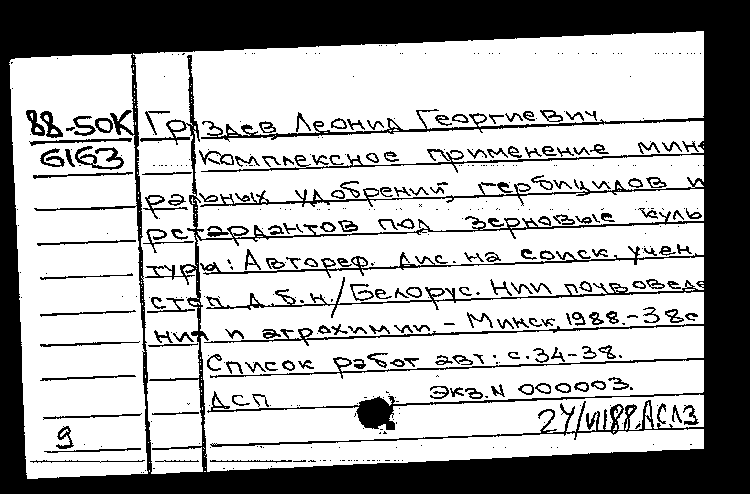 88-50К Груздев, Леонид Георгиевич.
6163 Комплексное применение мине
ральных удобрений, гербицидов и
ретардантов под зерновые куль
туры: Автореф. дис. на соиск. учен.
степ. д.б.н./Белорус. НИИ почвоведе
ния и агрохимии. - Минск, 1988. - 38с
Список работ авт.: с. 34-38.
ДСП Экз. N 000003.
9